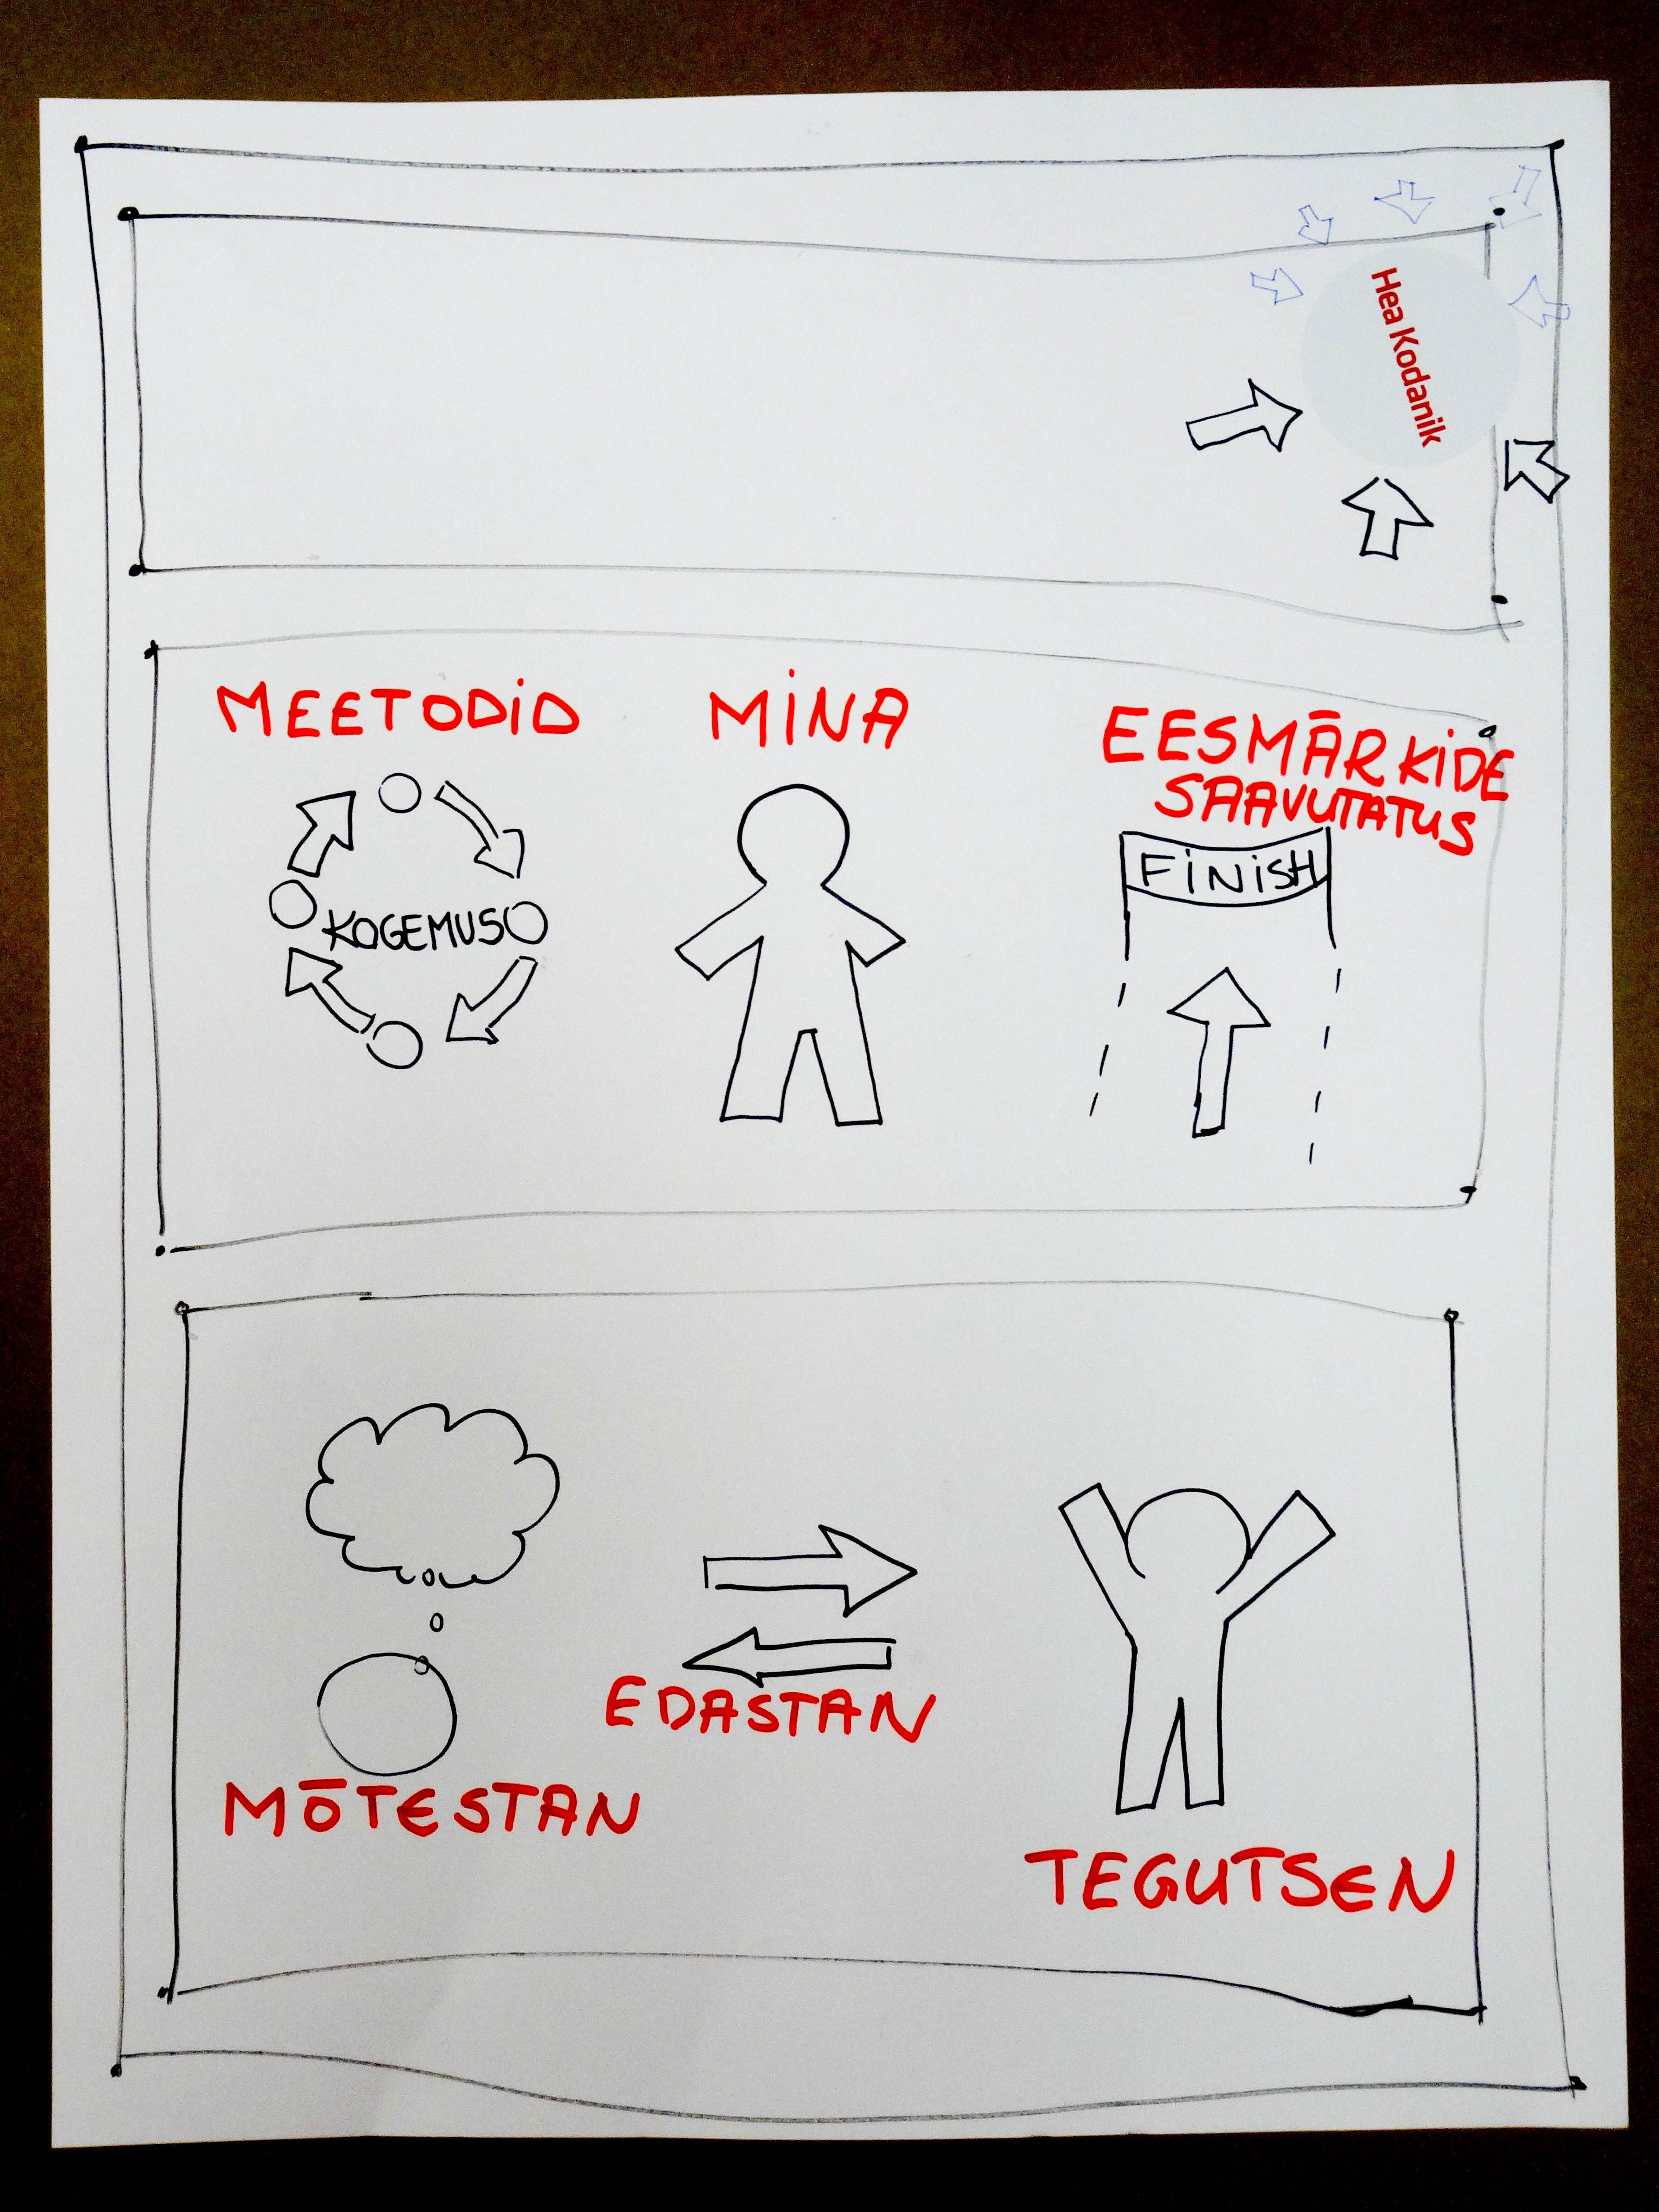 Hea Kodanik
MEETODID
MINA
EESMÄRKIDE
SAAVUTATUS
KOGEMUS
FINISH
EDASTAN
MÕTESTAN
TEGUTSEN